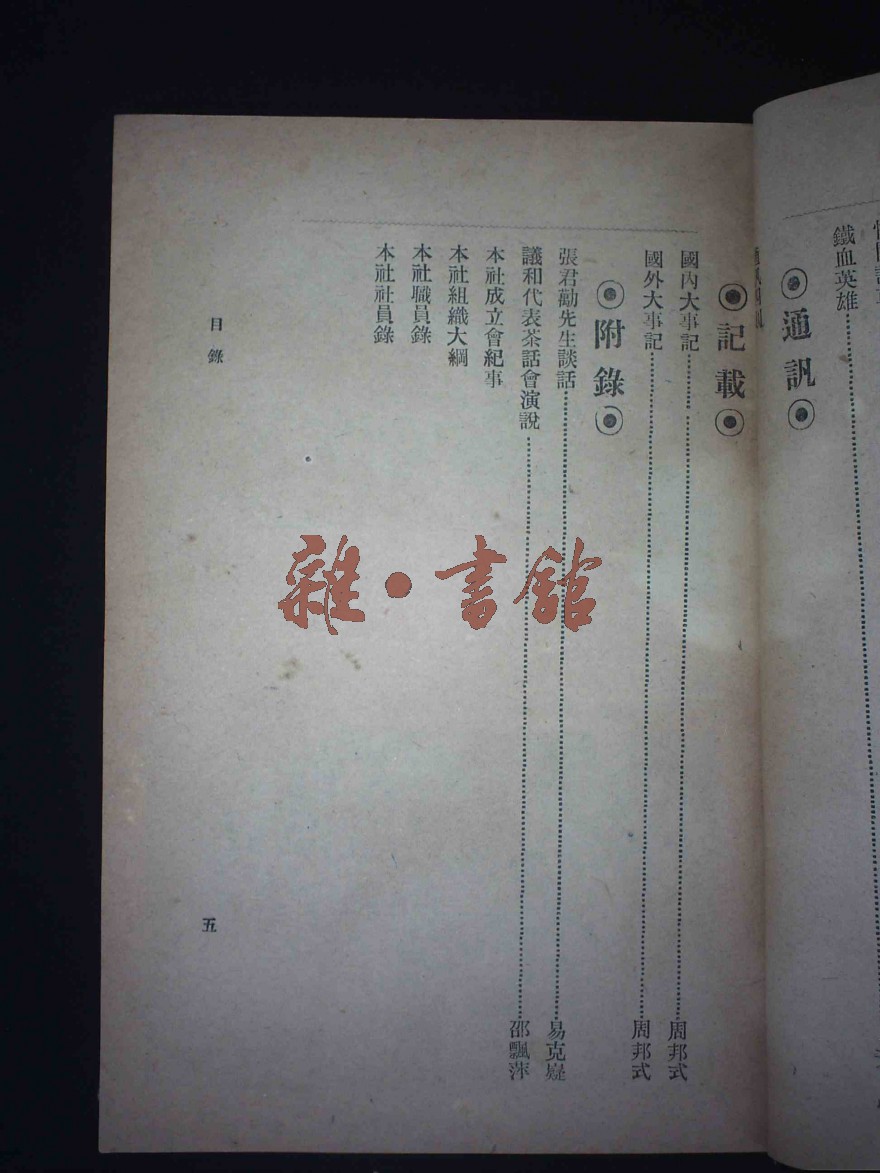 鐵血英雄
通訊
記載
國內大事記 周邦式
國外大事記 周邦式
附錄
張君勱先生談話 易克嶷
議和代表茶話會演說 邵飄萍
本社成立會紀事
本社組織大綱
本社職員錄
本社社員錄
目錄
五
雜·書館